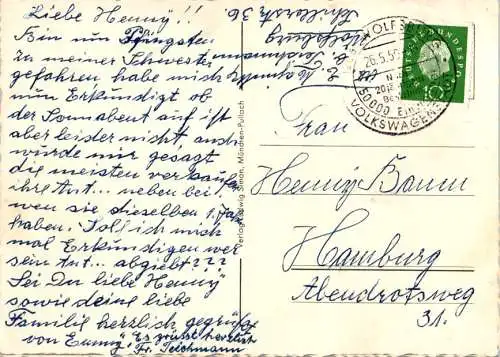 Liebe Henny!!
Bin um Pfingsten
zu meiner Schwester
gefahren habe mich
nun Erkündigt ob
der Sonnabent auf ist
aber leider nicht, auch
würde mir gesagt
die meisten verkaufen
ihre Aut... neben bei
wen sie dieselben 1. Jahr
haben. Soll ich mich
mal Erkündigen wer
sein Aut... abgiebt???
Sei Du liebe Henny
sowie deine liebe
Familie herzlich gegrüßt
von Emmy. Es grüsst herzlich
Fr. Teichmann
Wolfsburg
Schillerstr. 36.
Verlag Ludwig Simon, München-Pullach
WOLFSBURG
26.5.59
VOLKSWAGENS
DEUTSCHE BUNDESPOST
10
Frau
Henny Baum
Hamburg
Abendrotsweg
31.